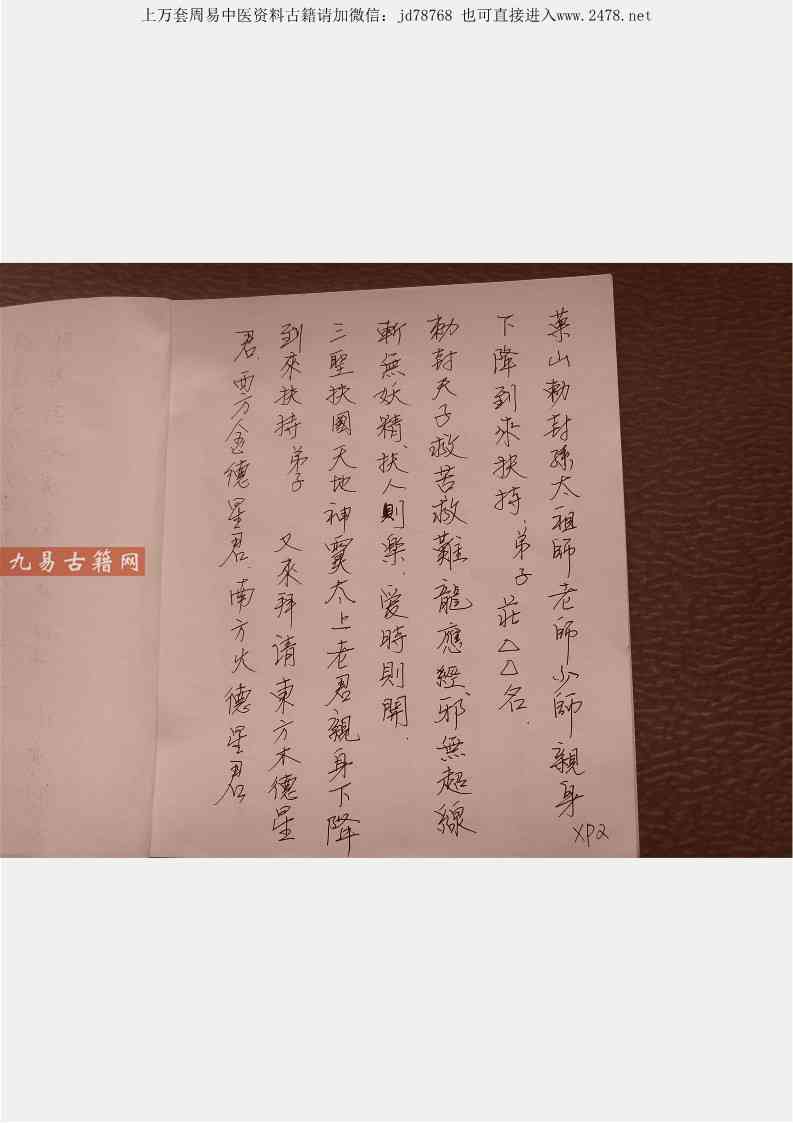 上万套周易中医资料古籍请加微信：jd78768 也可直接进入www.2478.net
葉山勅封孫太祖師老師少師親身
下降到來扶持、弟子 莊△△名．
勅封夫子救苦救難龍應經、邪無超線
斬無妖精、扶人則樂、愛時則開．
三聖扶國天地神靈太上老君親身下降
到來扶持 弟子 又來拜請東方木德星
君、西方金德星君、南方火德星君
XP2
九易古籍网